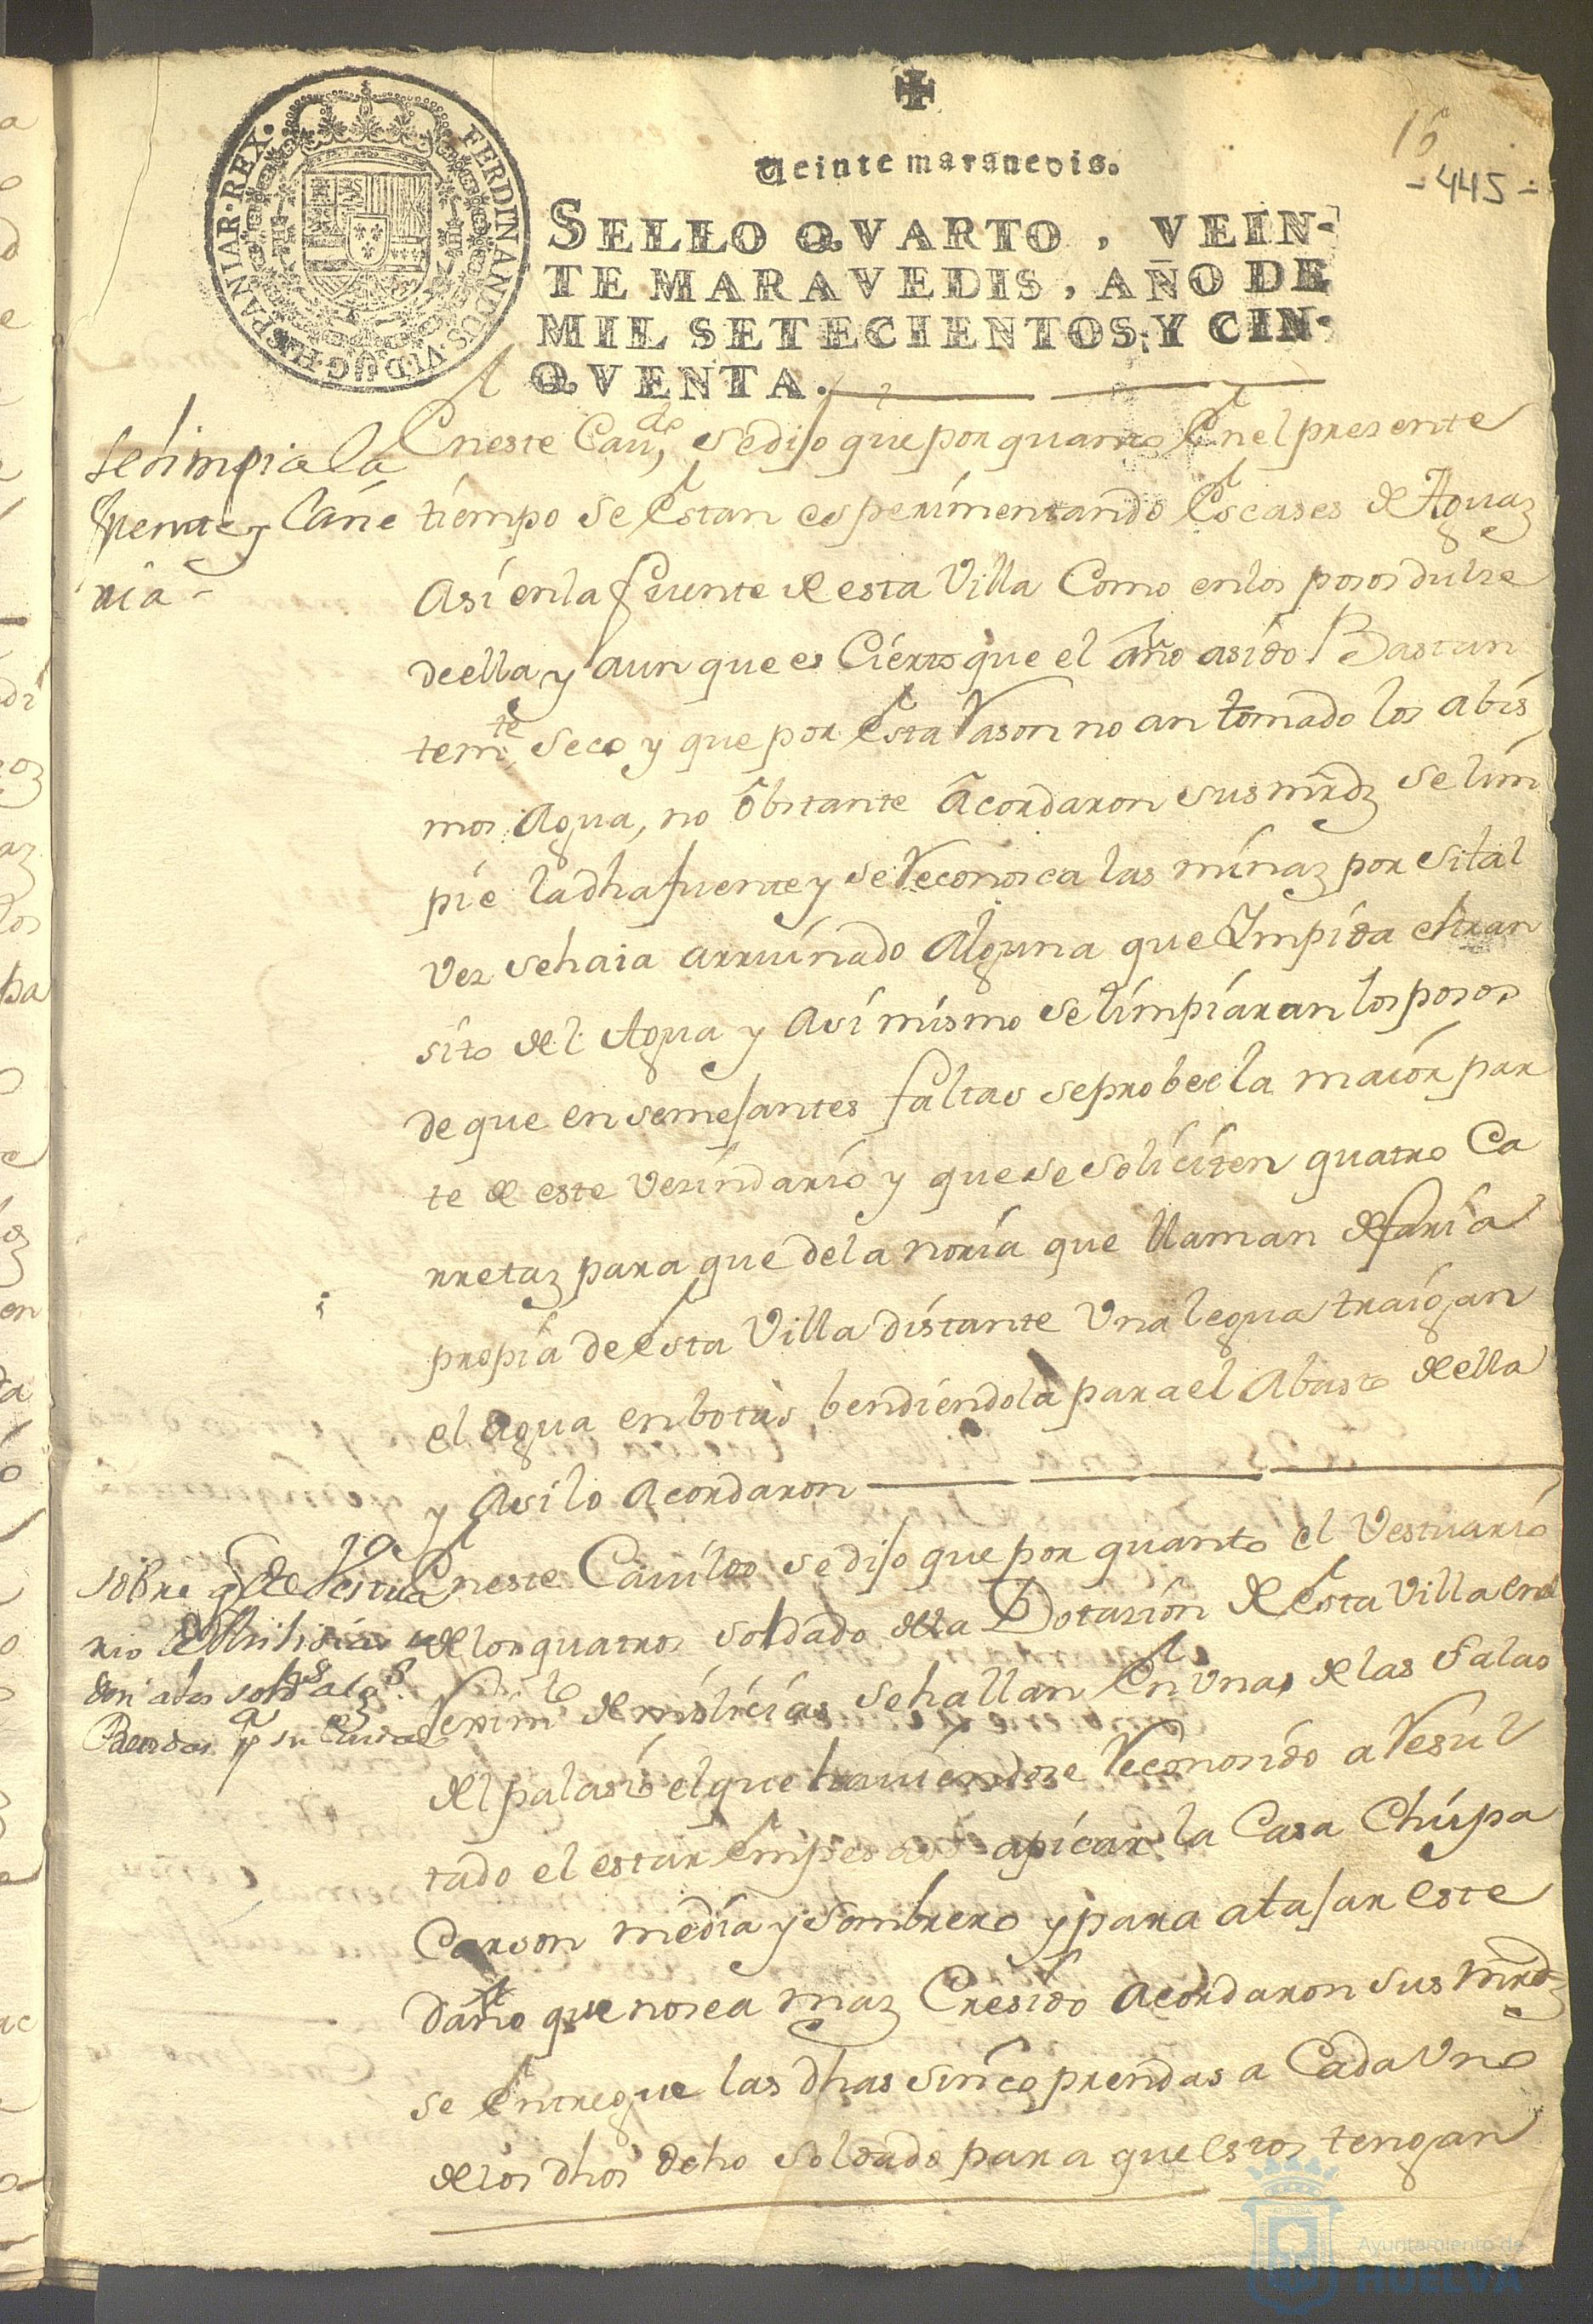 FERDINANDUS·VI·D·G·HISPANIAR·REX·
Veinte maravedis.
16
-445-
SELLO QVARTO, VEIN-
TE MARAVEDIS, AÑO DE
MIL SETECIENTOS, Y CIN-
QVENTA.
Se limpia la
fuente y Cañe
ria -
En este Cau.do, se diso que por quanto En el presente
tiempo se Estan esperimentando Escases de Aguaz
Asi en la fuente de esta Villa Como en los posos dulse
de ella y aun que es Cierto que el año a sido Bastan
tem.te seco y que por Esta Rason no an tomado los abis
mos Agua, no obstante Acordaron sus mrdz se lim
pie la dha fuente y se Reconosca las minaz por si tal
vez se haia arruinado Alguna que Impida el tran
sito del Agua y Asi mismo se limpiaran los posos
de que en semejantes faltas se probee la maior par
te de este vezindario y que se soliciten quatro Ca
rretaz para que de la noria que llaman de faria
propia de Esta Villa distante Una legua traigan
el agua en botas, bendiendola para el Abasto de ella
y Asi lo Acordaron
sobre q.e
Vestua
rio de Milisias se
den a los sold.s
Prendas p.a su Cuida.do
En este Cauildo se diso que por quanto el Vestuario
de los quatro soldado de la Dotazion de Esta Villa en el
Reximto de milicias se hallan En una de las Salas
del palasio el que hauiendose Reconosido a Resul
tado el estar Empesado apicar la Casa Chupa
Carson media y sombrero y para atasar este
Daño que no sea maz Cresido acordaron sus mrdz
se Entregue las dhas sinco prendas a Cada Uno
de los dhos ocho soldado para que Estos tengan
Ayuntamiento de
HUELVA